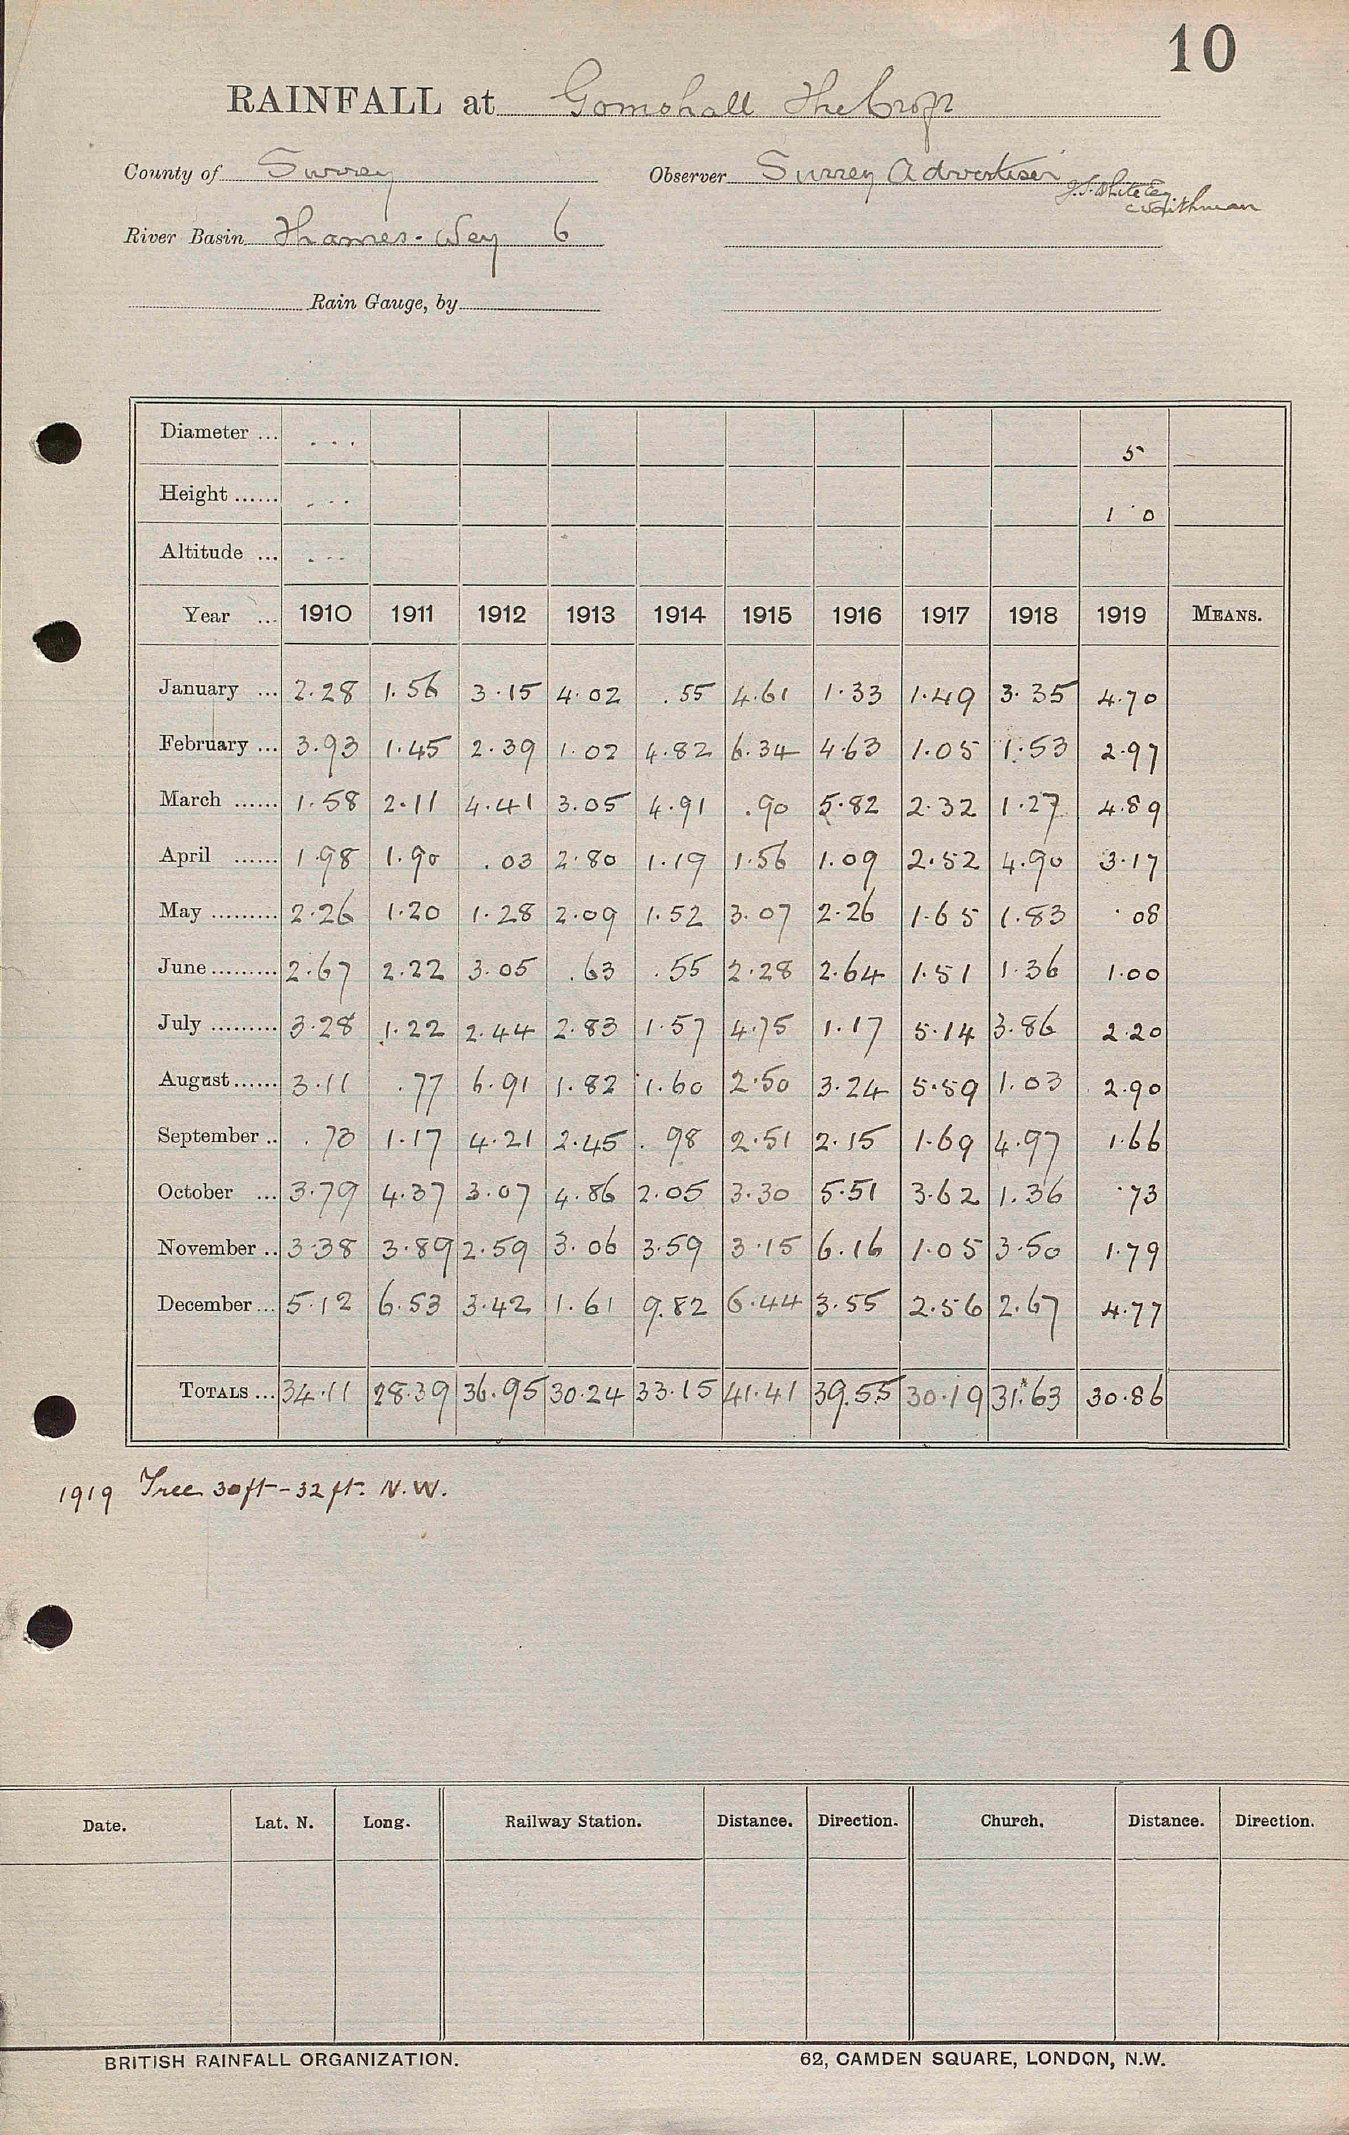 10
RAINFALL at Gomshall The Croft
County of Surrey Observer Surrey Advertiser
River Basin Thames-Wey 6
Rain Gauge, by
Diameter ... ... 5
Height ...... ... 1 0
Altitude ... ...
Year ... 1910 1911 1912 1913 1914 1915 1916 1917 1918 1919 MEANS.
January ... 2.28 1.56 3.15 4.02 .55 4.61 1.33 1.49 3.35 4.70
February ... 3.93 1.45 2.39 1.02 4.82 6.34 4.63 1.05 1.53 2.97
March ...... 1.58 2.11 4.41 3.05 4.91 .90 5.82 2.32 1.27 4.89
April ...... 1.98 1.90 .03 2.80 1.19 1.56 1.09 2.52 4.90 3.17
May ......... 2.26 1.20 1.28 2.09 1.52 3.07 2.26 1.65 1.83 .08
June ......... 2.67 2.22 3.05 .63 .55 2.28 2.64 1.51 1.36 1.00
July ......... 3.28 1.22 2.44 2.83 1.57 4.75 1.17 5.14 3.86 2.20
August ...... 3.11 .77 6.91 1.82 1.60 2.50 3.24 5.59 1.03 2.90
September .. .73 1.17 4.21 2.45 .98 2.51 2.15 1.69 4.97 1.66
October ... 3.79 4.37 3.07 4.86 2.05 3.30 5.51 3.62 1.36 .73
November .. 3.38 3.89 2.59 3.06 3.59 3.15 6.16 1.05 3.50 1.79
December ... 5.12 6.53 3.42 1.61 9.82 6.44 3.55 2.56 2.67 4.77
TOTALS ... 34.11 28.39 36.95 30.24 33.15 41.41 39.55 30.19 31.63 30.86
1919 Tree 30ft - 32 ft. N.W.
Date. Lat. N. Long. Railway Station. Distance. Direction. Church. Distance. Direction.
BRITISH RAINFALL ORGANIZATION. 62, CAMDEN SQUARE, LONDON, N.W.